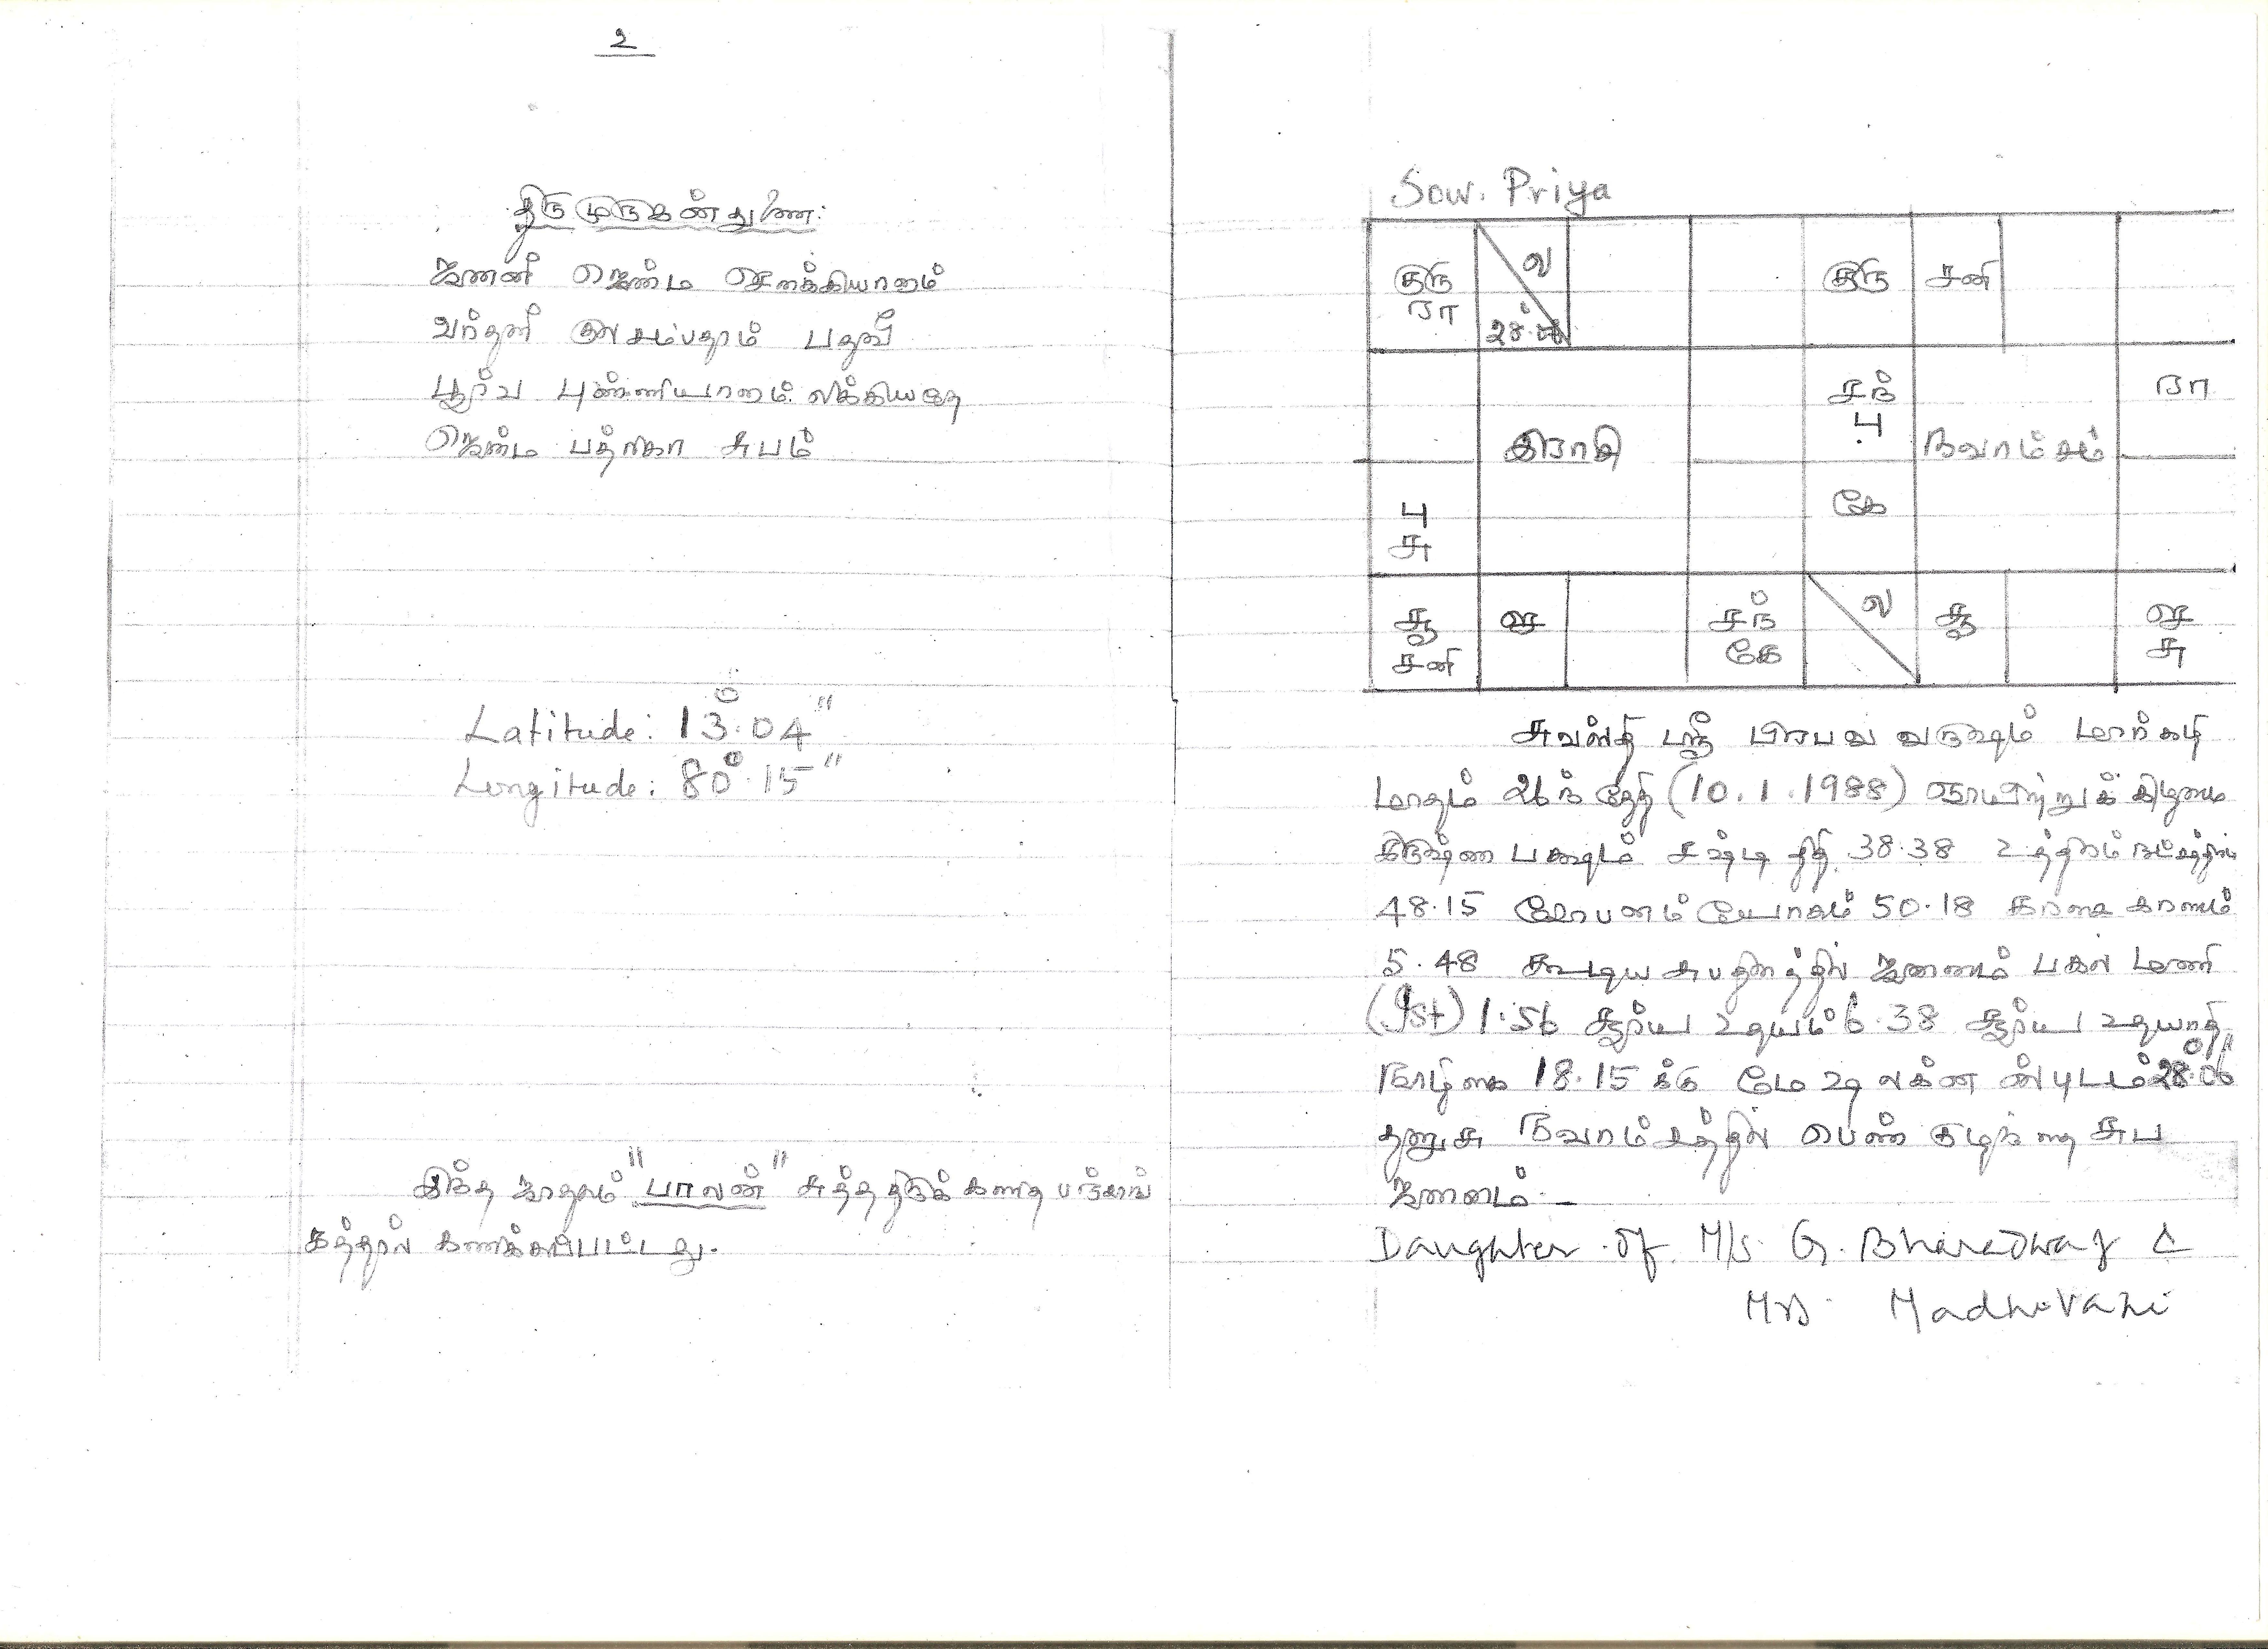 உ
திருமுருகன் துணை
ஜனனீ ஜென்ம சௌக்கியானாம்
வர்தனீ குல சம்பதாம் பதவீ
பூர்வ புண்ணியானாம் லிக்கியதே
ஜென்ம பத்ரிகா சுபம்
Latitude: 13°.04"
Longitude: 80°.15"
இந்த ஜாதகம் "பாலன்" சுத்த திருக் கணித பஞ்சாங்
கத்தால் கணிக்கப்பட்டது.
Sow. Priya
குரு ல குரு சனி
ரா 28°.06
சந் ரா
பு
இராசி நவாம்சம்
பு கே
சு
சூ செ சந் ல சூ செ
சனி கே சு
சுவஸ்தி ஸ்ரீ பிரபவ வருஷம் மார்கழி
மாதம் 26ந் தேதி (10.1.1988) ஞாயிற்றுக் கிழமை
கிருஷ்ண பக்ஷம் சஷ்டி திதி 38.38 உத்திரம் நட்சத்திரம்
48.15 சோபனம் யோகம் 50.18 கரசை கரணம்
5.48 கூடிய சுபதினத்தில் ஜனனம் பகல் மணி
(Ist) 1.56 சூர்ய உதயம் 6.38 சூர்ய உதயாதி
நாழிகை 18.15 க்கு மேஷ லக்ன ஸ்புடம் 28°.06"
தனுசு நவாம்சத்தில் பெண் குழந்தை சுப
ஜனனம்.
Daughter of M/s. G. Bharadwaj &
Mrs. Madhuvani